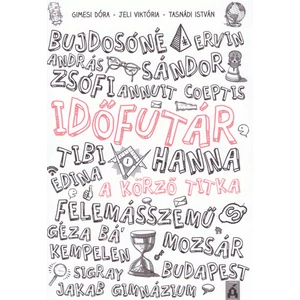 GIMESI DÓRA • JELI VIKTÓRIA • TASNÁDI ISTVÁN
BUJDOSÓNÉ ERVIN
ANDRÁS SÁNDOR
ZSÓFI ANNUIT COEPTIS
IDŐFUTÁR
TIBI HANNA
EDINA
A KÖRZŐ TITKA
FELEMÁSSZEMŰ
GÉZA BÁ' MOZSÁR
KEMPELEN BUDAPEST
SIGRAY
JAKAB GIMNÁZIUM